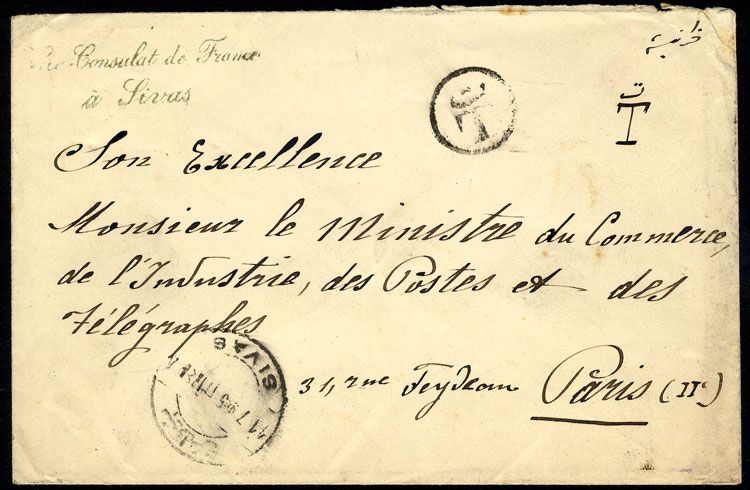 Vice Consulat de France
à Sivas
T
ت
T
Son Excellence
Monsieur le Ministre du Commerce,
de l'Industrie, des Postes et des
Télégraphes
31, rue Feydeau Paris (IIe)
SIVAS